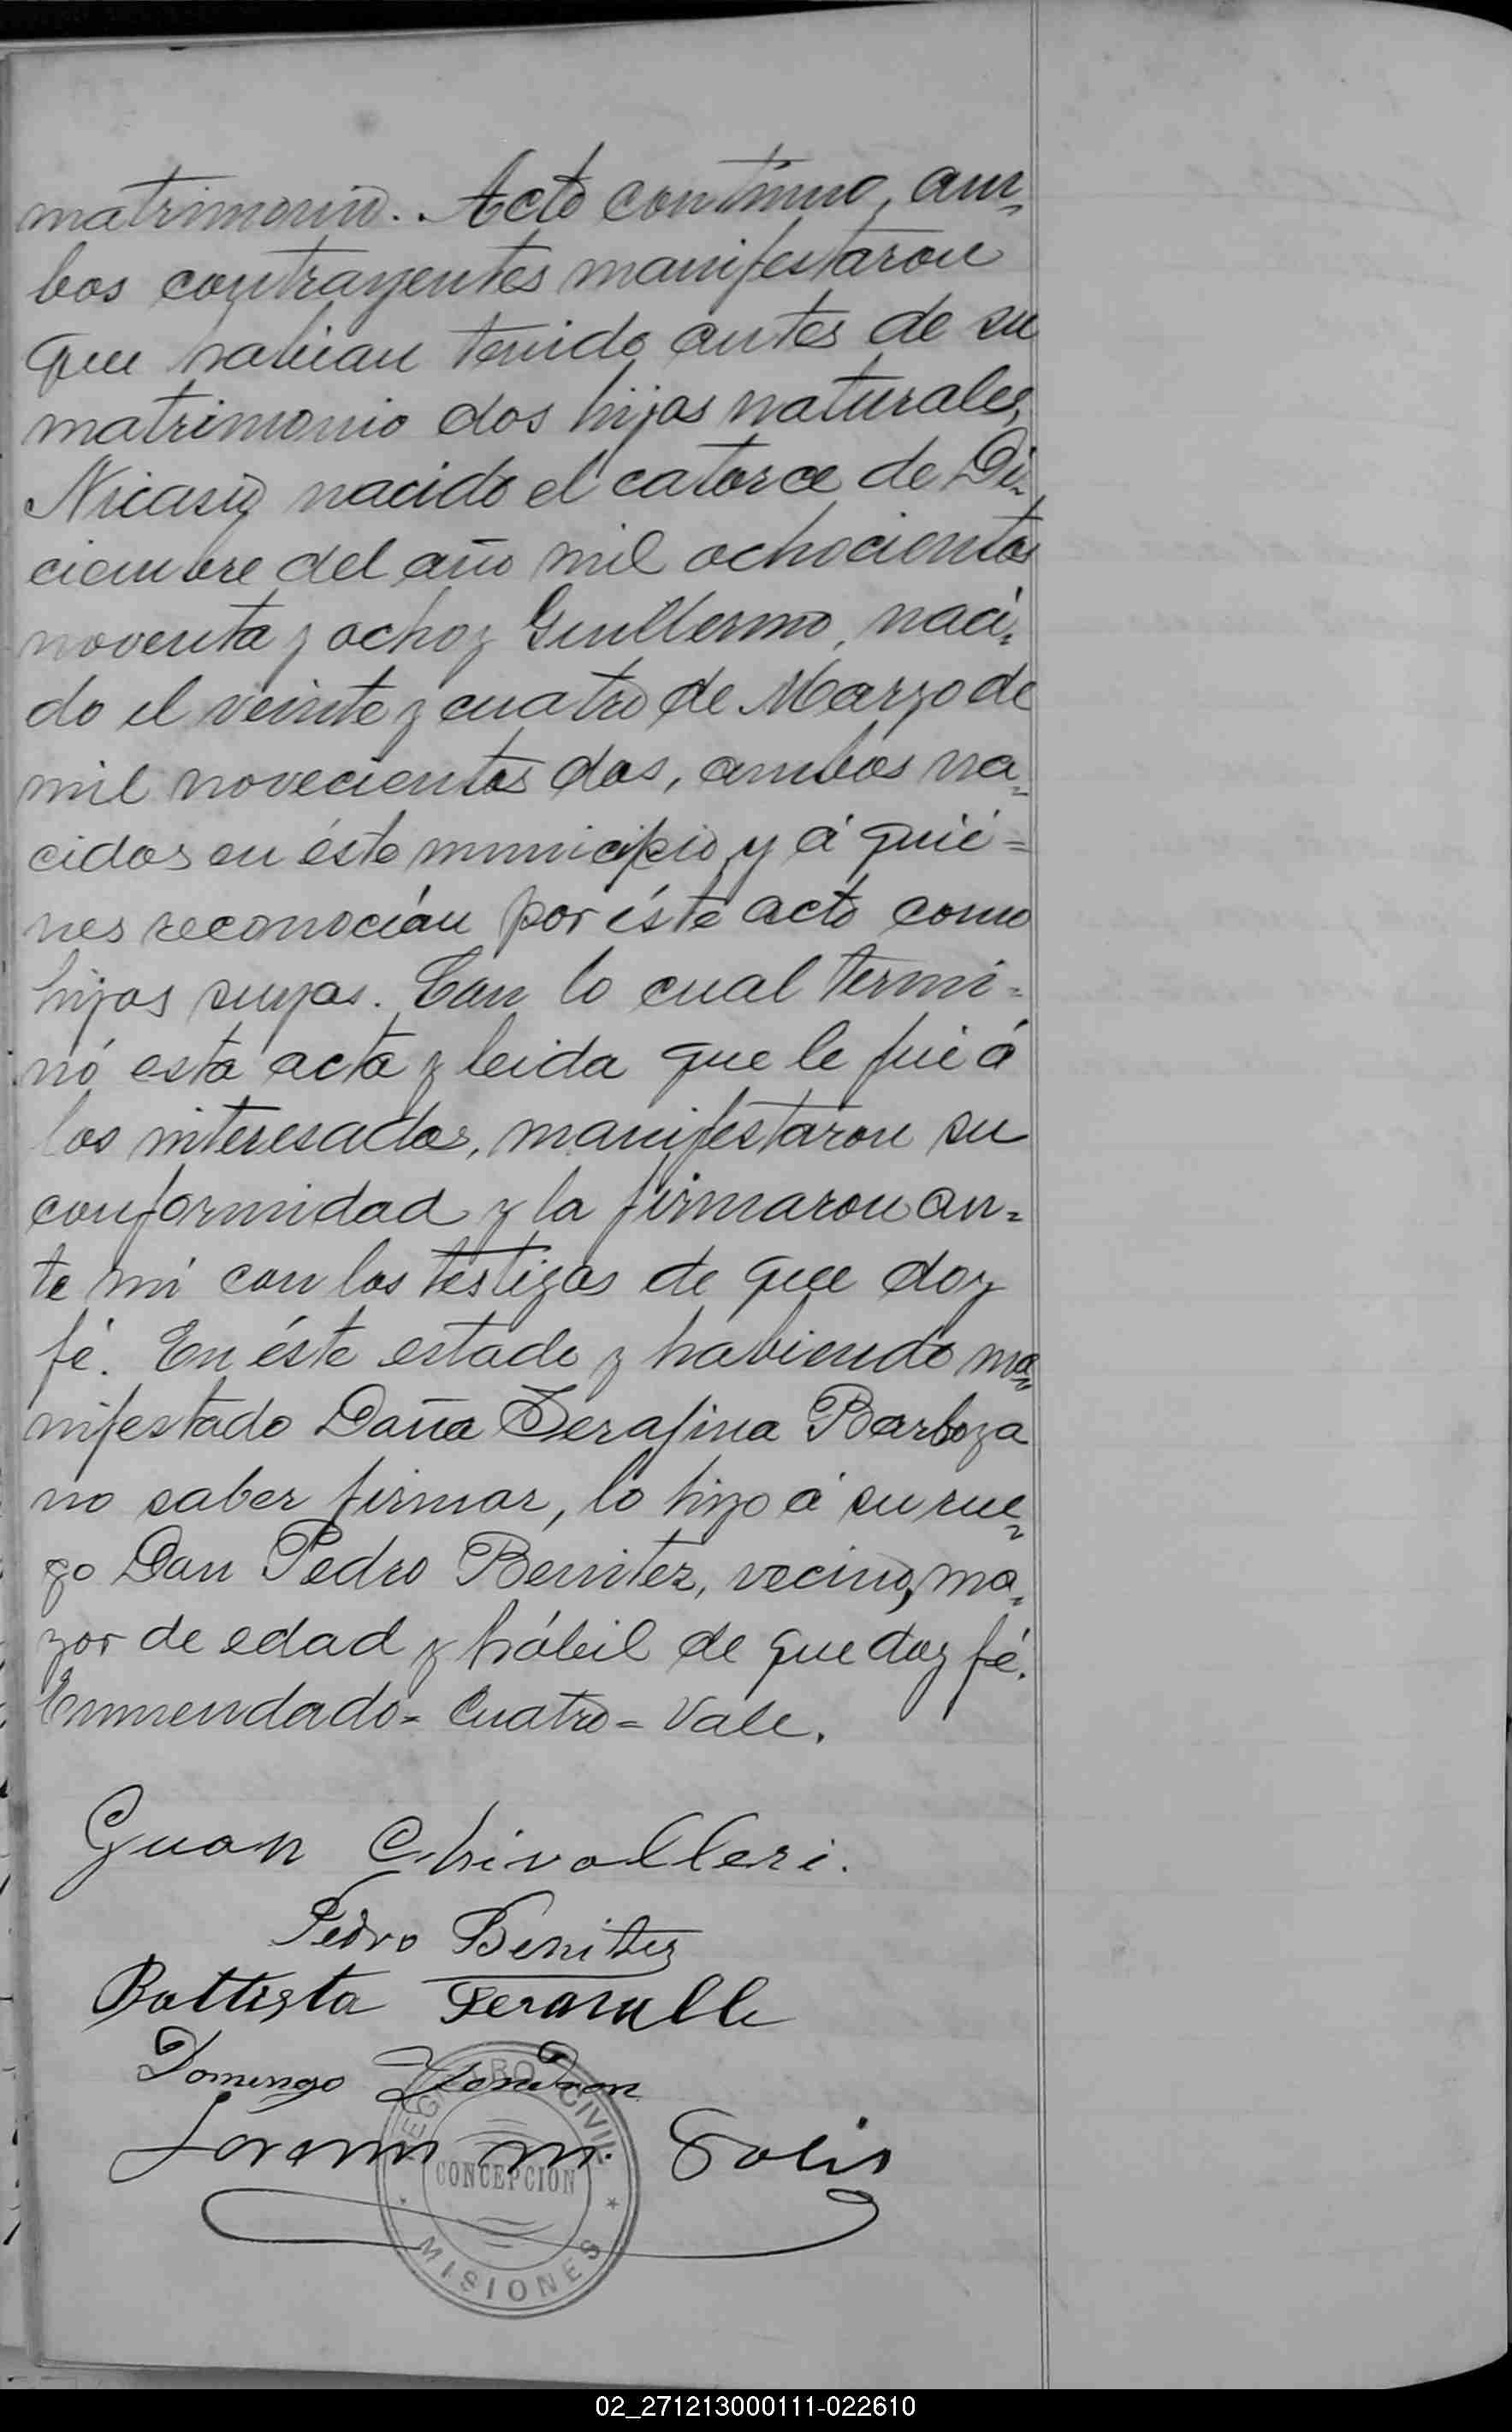 matrimonio. Acto contínuo, am,
bos contrayentes manifestaron
que habian tenido antes de su
matrimonio dos hijos naturales,
Nicasio nacido el catorce de Di,
ciembre del año mil ochocientos
noventa y ocho y Guillermo, naci,
do el veinte y cuatro de Marzo de
mil novecientos dos, ambos na,
cidos en éste municipio y á quié=
nes reconocián por éste acto como
hijos suyos. Con lo cual termi=
nó esta acta y leida que le fué á
los interesados, manifestaron su
conformidad y la firmaron an=
te mí con los testigos de que doy
fé. En éste estado y habiendo ma,
nifestado Doña Serafina Barboza
no saber firmar, lo hizo á su rue,
go Don Pedro Benitez, vecino, ma,
yor de edad y hábil de que doy fé.
Enmendado= cuatro= Vale.
Guan Chivalleri.
Pedro Benitez
Battista
Domingo
M. Solis
REGISTRO CIVIL
CONCEPCION
MISIONES
02_271213000111-022610